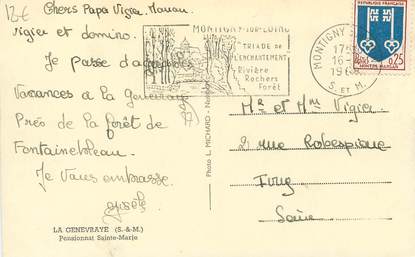 12€
Chers Papa Vigier. Maman.
Vigier et domino.
Je passe d'agréables
Vacances a la Genevraye
Près de la forêt de
Fontainebleau.
Je Vous embrasse.
gisèle
LA GENEVRAYE (S.-&-M.)
Pensionnat Sainte-Marie
Photo L. MICHARD
MONTIGNY-SUR-LOING
TRIADE DE
L'ENCHANTEMENT
Rivière
Rochers
Forêt
MONTIGNY
S. ET M.
REPUBLIQUE FRANÇAISE
0,25
MONT-DE-MARSAN
Mr et Mme Vigier
2 rue Robespierre
Ivry
Seine